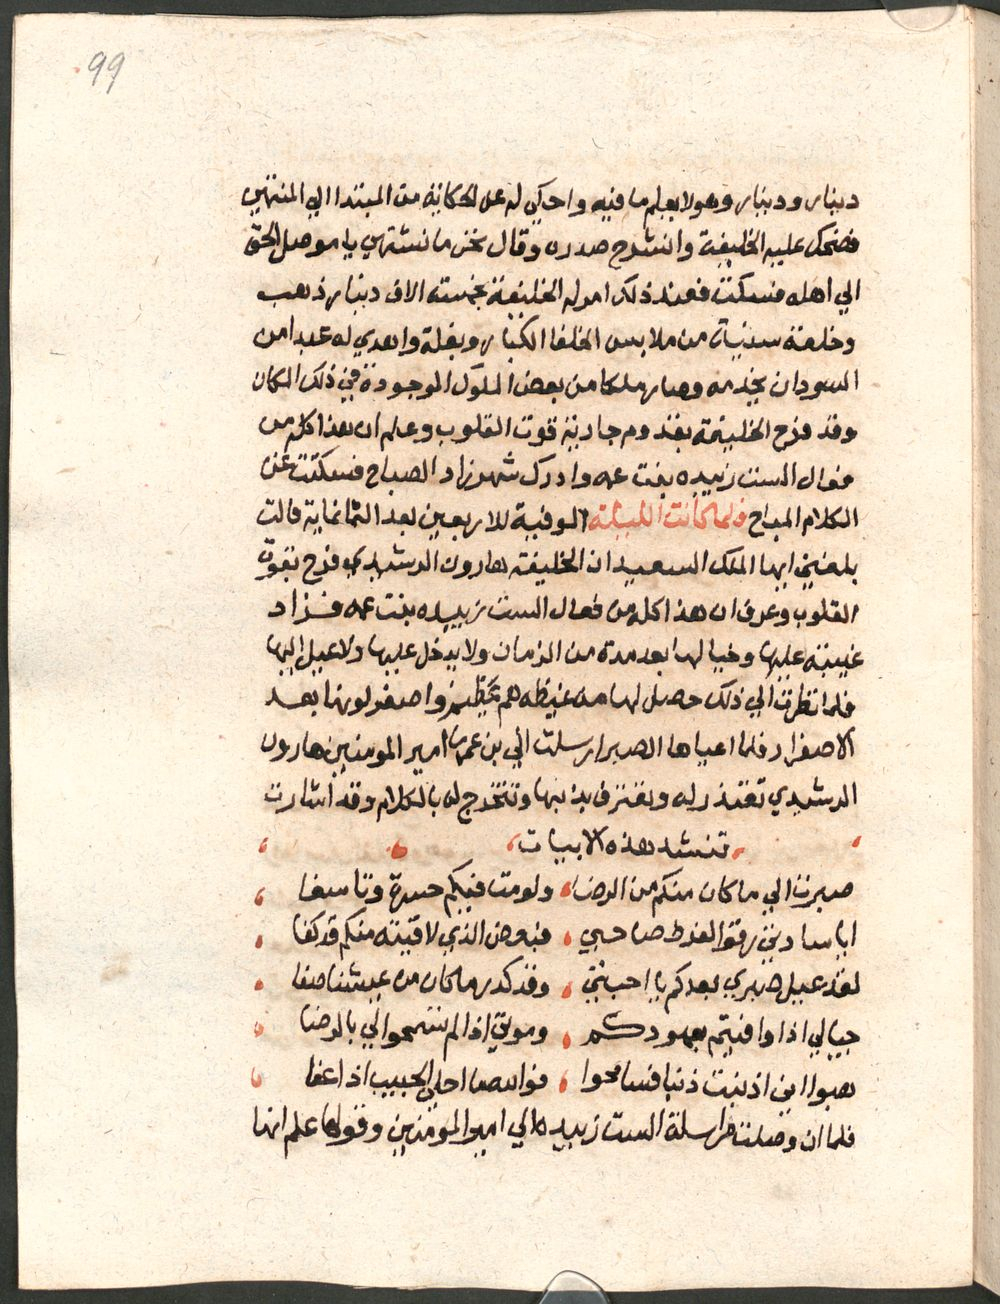 99
دينار ودينار وهو لا يعلم ما فيه واحكي له علي الحكاية من المبتدا الي المنتهي
فضحك عليه الخليفة وانشرح صدره وقال نحن ما نشتهي يا موصل الحق
الي اهله فسكت فعند ذلك امر له الخليفة بخمسة الاف دينار ذهب
وخلعة سنية من ملابس الخلفا الكبار وبغلة واهدي له عبدا من
السودان يخدمه وصار ملكا من بعض الملوك الموجودة في ذلك المكان
وقد فرح الخليفة بقدوم جارية قوت القلوب وعلم ان هذا كله من
فعال الست زبيده بنت عمه وادرك شهرزاد الصباح فسكتت عن
الكلام المباح فلما كانت الليلة الموفية للاربعين بعد الثمانماية قالت
بلغني ايها الملك السعيد ان الخليفة هارون الرشيدي فرح بقوت
القلوب وعرف ان هذا كله من فعال الست زبيده بنت عمه فزاد
غيبته عليها وخبا لها بعد مدة من الزمان ولا يدخل عليها ولا يميل اليها
فلما نظرت الي ذلك حصل لها من غيظه هم عظيم واصفر لونها بعد
الاصفرار فلما اعياها الصبر ارسلت الي بن عمها امير المومنين هارون
الرشيدي تعتذر له وتعترف بذنبها وتتخرج له بالكلام وقد اشارت
تنشد هذه الابيات
صبرت الي ما كان منكم من الرضا ولو مت فيكم حسرة وتاسفا
ايا سادتي رقوا لفرط صباحبي فبعض الذي لاقيته منكم قد كفا
لقد عيل صبري بعدكم يا احبتي وقد كدر ما كان من عيشنا صفا
حيالي اذا وافيتم بعهودكم وموتي اذا لم تسمحوا لي بالرضا
هبوا اني اذنبت ذنبا فسامحوا فوالله ما احلي الحبيب اذا عفا
فلما ان وصلت مراسلة الست زبيده الي امير المومنين وقولها علم انها